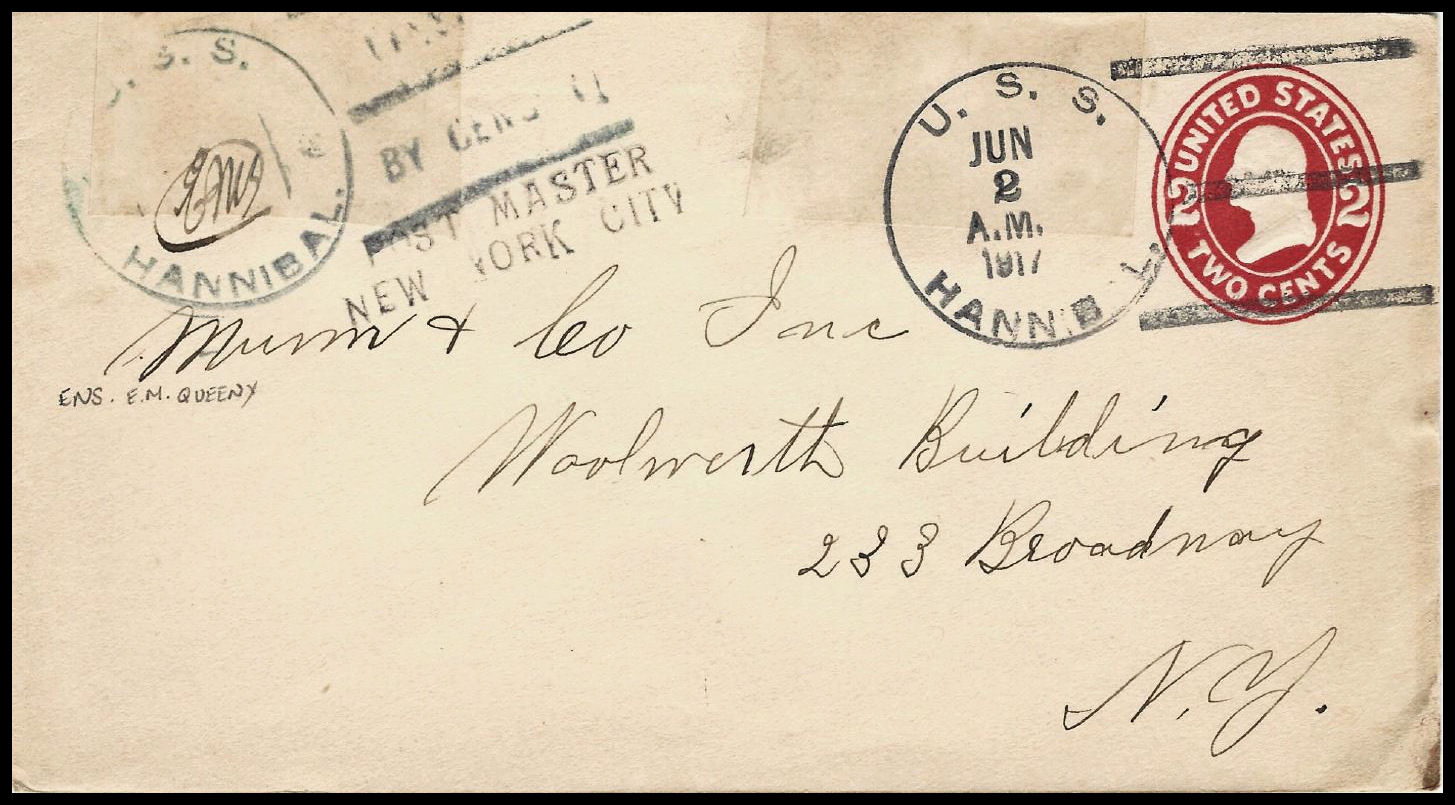 U. S. S.
HANNIBAL.
BY CENS
POST MASTER
NEW YORK CITY
U. S. S.
JUN
2
A.M.
1917
HANNIB L.
UNITED STATES
2 2
TWO CENTS
Munn & Co Inc
ENS. E.M. QUEENY
Woolworth Building
233 Broadway
N.Y.